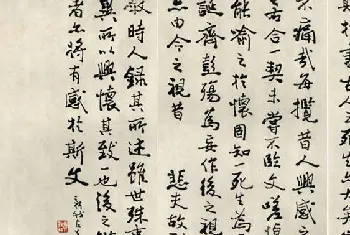 古人云死生亦大矣
不痛哉每攬昔人興感之
若合一契未嘗不臨文嗟悼
能喻之於懷固知一死生為
誕齊彭殤為妄作後之視
亦由今之視昔 悲夫故列
敘時人錄其所述雖世殊
異所以興懷其致一也後之
者亦將有感於斯文